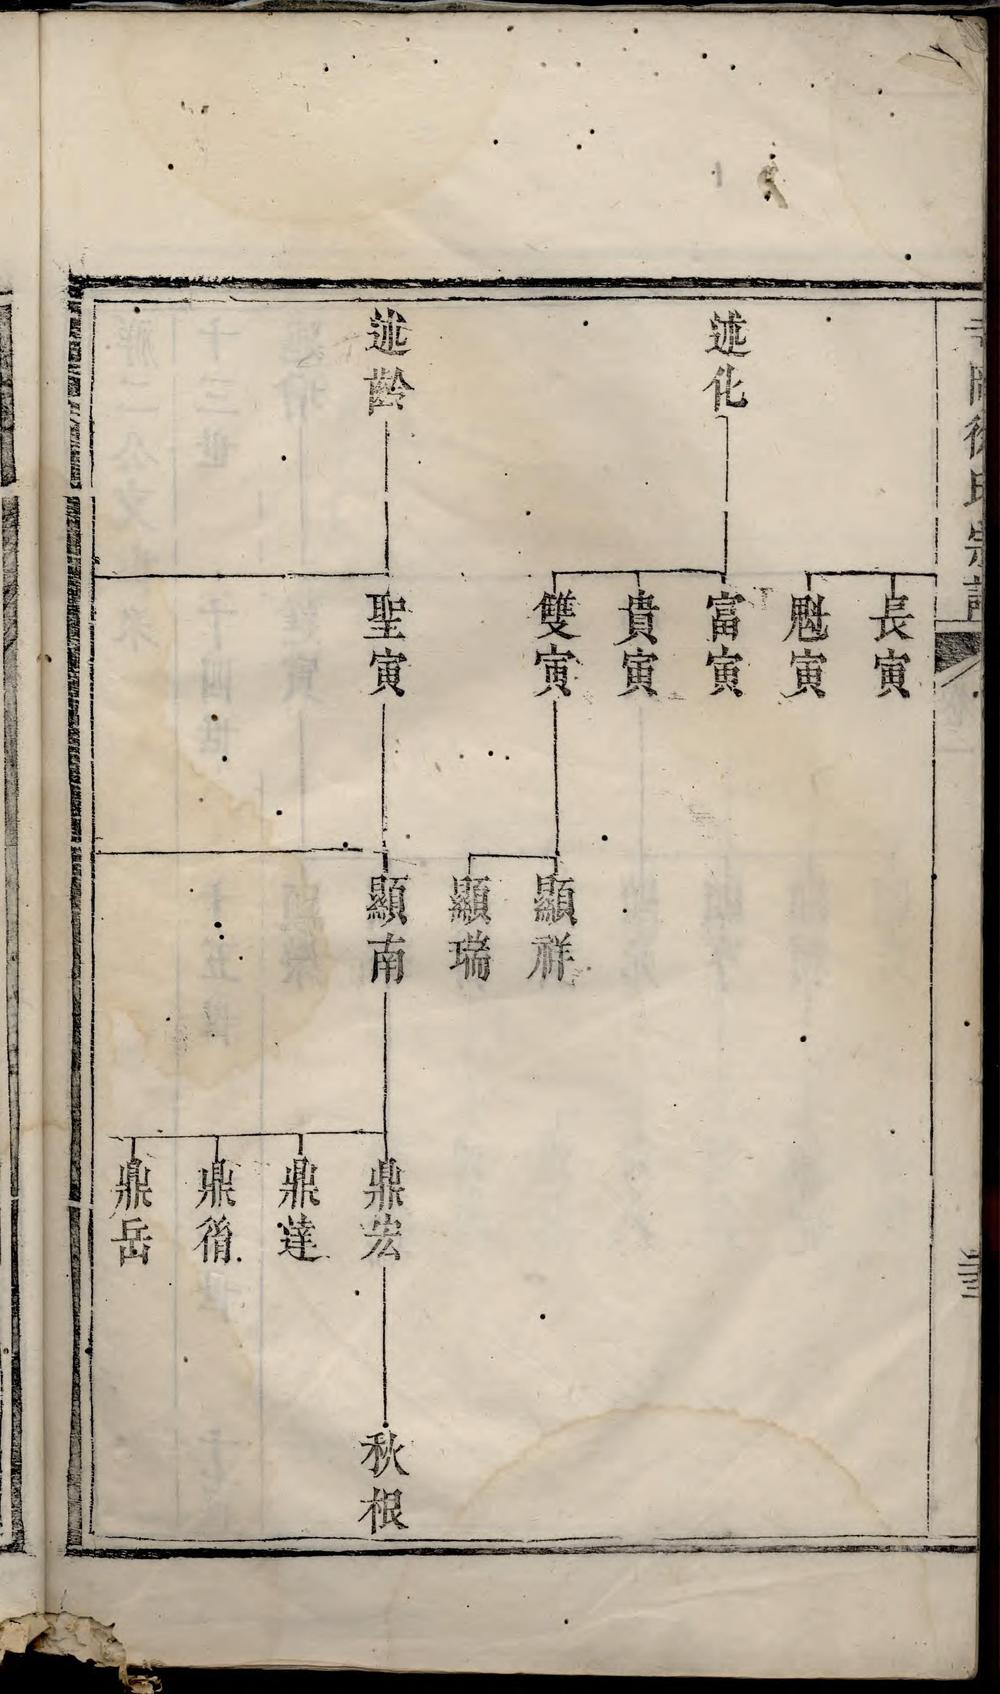 徐氏宗譜
述化
述齡
長寅
魁寅
富寅
貴寅
雙寅
聖寅
顯祥
顯瑞
顯南
鼎宏
鼎達
鼎脩
鼎岳
秋根